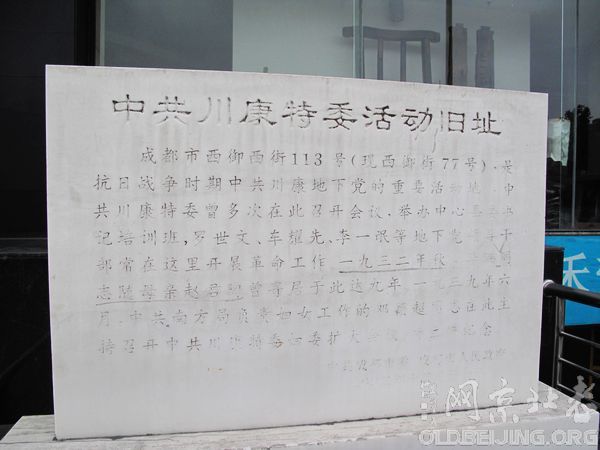 中共川康特委活动旧址
成都市西御西街113号(现西御街77号)是
抗日战争时期中共川康地下党的重要活动地 中
共川康特委曾多次在此召开会议,举办中心县委书
记培训班,罗世文、车耀先、李一氓等地下党
部常在这里开展革命工作 一九三二年秋 同
志随母亲赵君陶曾寄居于此达九年,一九三九年六
月,中共南方局负责妇女工作的邓颖超同志在此主
持召开中共川康特委妇委扩大会
人民政府
网京北老
OLDBEIJING.ORG